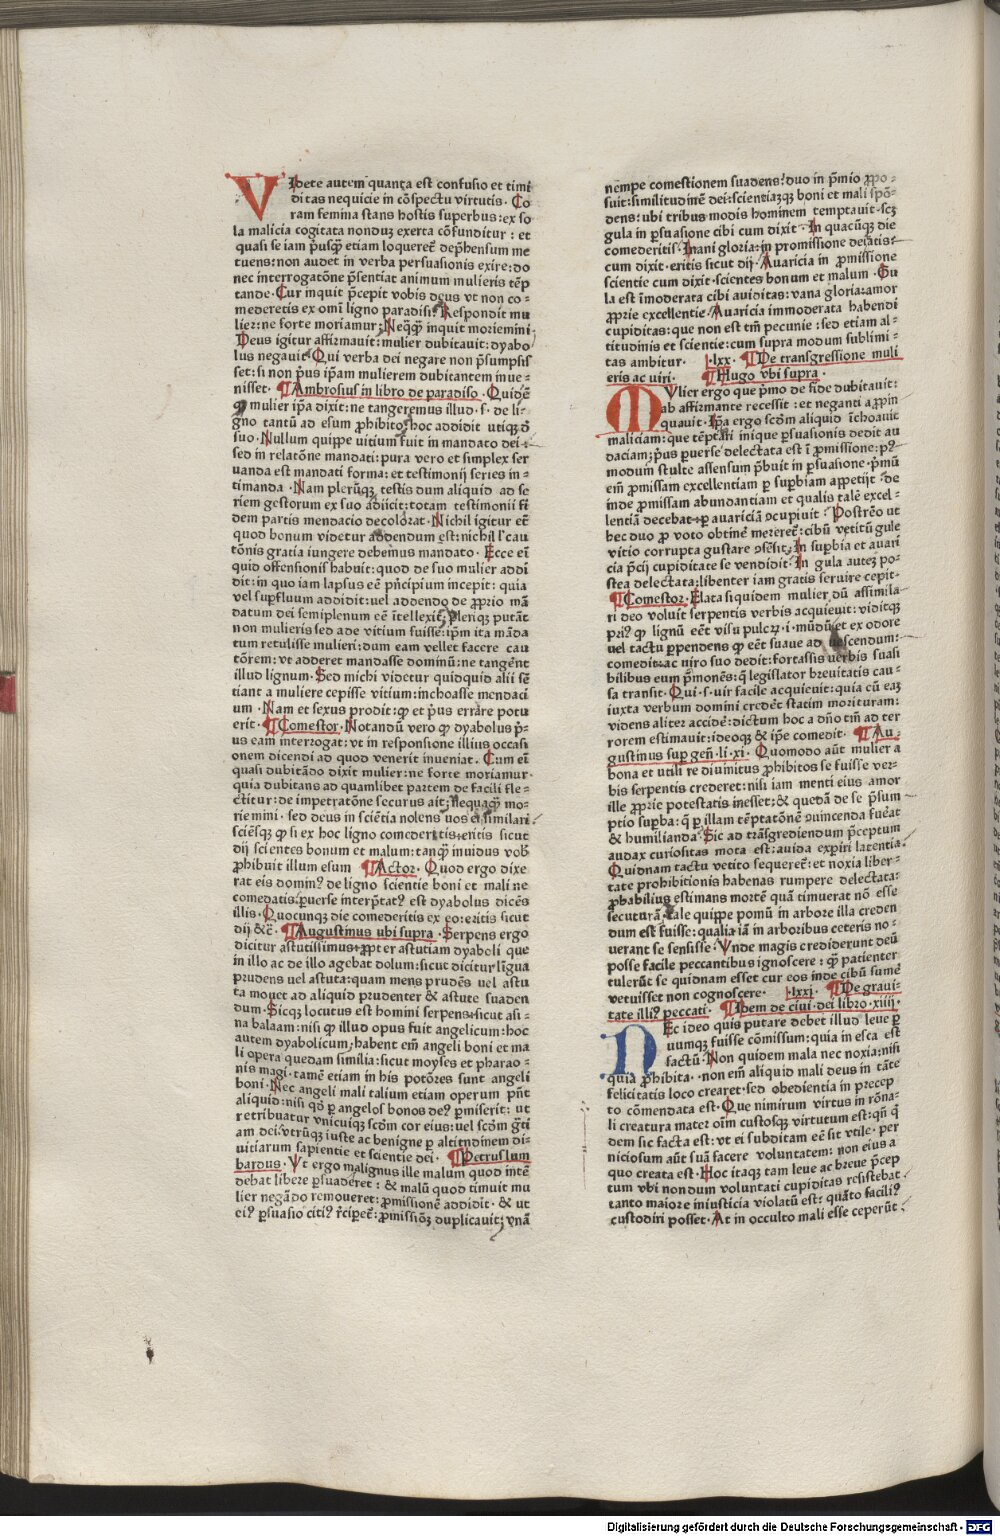 VIdete autem quanta est confusio et timi
ditas nequicie in cōspectu virtutis. Co
ram femina stans hostis superbus: ex so
la malicia cogitata nonduȝ exerta cōfunditur: et
quasi se iam p̄usq̄ etiam loqueret̉ dep̄hensum me
tuens: non audet in verba persuasionis exire: do
nec interrogatōne p̄sentiat animum mulieris tēp
tande. Cur inquit p̄cepit vobis deus vt non co-
mederetis ex omī ligno paradisi? Respondit mu
lier: ne forte moriamur. Neq̄q̄ inquit moriemini
Deus igitur affirmauit: mulier dubitauit: dyabo
lus negauit. Qui verba dei negare non p̄sumpsis
set: si non p̄us ip̄am mulierem dubitantem inue-
nisset. ¶Ambrosius in libro de paradiso. Quid ē
ꝙ mulier ip̄a dixit: ne tangeremus illud. s. de li-
gno tantū ad esum ꝓhibito: hoc addidit utiqȝ d̄
suo. Nullum quippe vitium fuit in mandato dei:
sed in relatōne mandati: pura vero et simplex ser
uanda est mandati forma: et testimonij series in-
timanda. Nam plerūqȝ testis dum aliquid ad se
riem gestorum ex suo adiicit: totam testimonii fi
dem partis mendacio decolorat. Nichil igitur et̄
quod bonum videtur addendum est: nichil l̕ cau
tōnis gratia iungere debemus mandato. Ecce eī
quid offensionis habuit: quod de suo mulier addi
dit: in quo iam lapsus eē p̄ncipium incepit: quia
vel suꝑfluum addidit: vel addendo de ꝓprio mā
datum dei semiplenum eē ītellexit. Pleriqȝ putāt
non mulieris sed ade vitium fuisse: ip̄m ita māda
tum retulisse mulieri: dum eam vellet facere cau
tōrem: vt adderet mandasse dominū: ne tangēnt
illud lignum. Sed michi videtur quidquid alii sē
tiant a muliere cepisse vitium: inchoasse mendaci
um. Nam et sexus prodit: ꝙ et p̄us errare potu
erit. ¶Comestor. Notandū vero ꝙ dyabolus p̄-
us eam interrogat: vt in responsione illius occasi
onem dicendi ad quod venerit inueniat. Cum eī
quasi dubitādo dixit mulier: ne forte moriamur.
quia dubitans ad quamlibet partem de facili fle-
ctitur: de impetratōne securus ait: nequaqȝ mo-
riemini. sed deus in sciētia nolens uos ei similari
sciēsqȝ ꝙ si ex hoc ligno comederitis: eritis sicut
dij scientes bonum et malum: tanqȝ inuidus vob̄
ꝓhibuit illum esum ¶Actor. Quod ergo dixe
rat eis dominꝰ de ligno scientie boni et mali ne
comedatis: ꝑuerse interp̄tatꝰ est dyabolus dicēs
illis. Quocunqȝ die comederitis ex eo: eritis sicut
dij &c̄. ¶Augustinus ubi supra. Serpens ergo
dicitur astutissimus: ꝓpter astutiam dyaboli que
in illo ac de illo agebat dolum: sicut dicitur līgua
prudens uel astuta: quam mens prudēs uel astu
ta mouet ad aliquid prudenter & astute suaden
dum. Sicqȝ locutus est homini serpens: sicut asi-
na balaam: nisi ꝙ illud opus fuit angelicum: hoc
autem dyabolicum: habent em̄ angeli boni et ma
li opera quedam similia: sicut moyses et pharao-
nis magi. tamē etiam in his potōres sunt angeli
boni. Nec angeli mali talium etiam operum pn̄t
aliquid: nisi qd̄ ꝑ angelos bonos deꝰ ꝑmiserit: ut
retribuatur vnicuiqȝ scd̄m cor eius: uel scd̄m gr̄ti
am dei: vtrūqȝ iuste ac benigne ꝑ altitudinem di-
uitiarum sapientie et scientie dei. ¶Petrus lum
bardus. Vt ergo malignus ille malum quod intē
debat libere ꝑsuaderet: & malū quod timuit mu
lier negādo remoueret: ꝓmissionē addidit. & ut
eiꝰ ꝑsuasio citiꝰ r̄ciperet̉: ꝓmissiōȝ duplicauit: vnā
nempe comestionem suadens: duo in p̄mio ꝓpo-
suit: similitudinē dei: scientiamqȝ boni et mali spō-
dens: ubi tribus modis hominem temptauit. scȝ
gula in ꝑsuasione cibi cum dixit. In quacūqȝ die
comederitis. Inani gloria: in promissione deitatis:
cum dixit. eritis sicut dij. Auaricia in ꝓmissione
scientie cum dixit. scientes bonum et malum. Gu
la est īmoderata cibi auiditas: vana gloria: amor
ꝓprie excellentie. Auaricia immoderata habendi
cupiditas: que non est tm̄ pecunie: sed etiam al-
titudinis et scientie: cum supra modum sublimi-
tas ambitur. .lxx. ¶De transgressione muli
eris ac uiri. ¶Hugo vbi supra.
MVlier ergo que p̄mo de fide dubitauit:
ab affirmante recessit: et neganti aꝓpin
quauit. Ip̄a ergo scd̄m aliquid īchoauit
maliciam: que tēptāti inique ꝑsuasionis dedit au
daciam: p̄us ꝑuerse delectata est ī ꝓmissione: pꝰ
modum stulte assensum p̄buit in ꝑsuasione. p̄mū
em̄ ꝓmissam excellentiam ꝑ suꝑbiam appetijt. de
inde ꝓmissam abundantiam et qualis talē excel-
lentiā decebat: ꝑ auariciā ↄcupiuit. Postrēo ut
hec duo ꝓ voto obtinē mereret̉: cibū vetitū gule
vitio corrupta gustare ↄsēsit. In suꝑbia et auari
cia p̄cij cupiditate se vendidit. In gula auteȝ po-
stea delectata: libenter iam gratis seruire cepit.
¶Comestor. Elata siquidem mulier dū assimila-
ri deo voluit serpentis verbis acquieuit: viditqȝ
priꝰ ꝙ lignū eēt visu pulcȝ .i. mūdū: et ex odore
uel tactu ꝑpendens ꝙ eēt suaue ad uescendum:
comedit: ac uiro suo dedit: fortassis verbis suasi
bilibus eum p̄monēs: q̄ legislator breuitatis cau-
sa transit. Qui .s. uir facile acquieuit: quia cū eaȝ
iuxta verbum domini credēt statim morituram:
videns aliter accidē: dictum hoc a dn̄o tm̄ ad ter
rorem estimauit: ideoqȝ & ip̄e comedit. ¶Au-
gustinus suꝑ gen̄. li. xi. Quomodo aūt mulier a
bona et utili re diuinitus ꝓhibitos se fuisse ver-
bis serpentis crederet: nisi iam menti eius amor
ille ꝓprie potestatis inesset: & quedā de se p̄sum
ptio suꝑba: q̄ ꝑ illam tēptatōnē ↄuincenda fuēat
& humilianda. Sic ad trāsgrediendum p̄ceptum
audax curiositas mota est: auida expiri latentia.
Quidnam tactu vetito sequeret̉: et noxia liber-
tate prohibitionis habenas rumpere delectata:
ꝓbabilius estimans mortē quā timuerat nō esse
secuturā. tale quippe pomū in arbore illa creden
dum est fuisse: qualia iā in arboribus ceteris no-
uerant se sensisse. Vnde magis crediderunt deū
posse facile peccantibus ignoscere: qȝ patienter
tulerūt se quidnam esset cur eos inde cibū sumē
vetuisset non cognoscere. .lxxi. ¶De graui-
tate illiꝰ peccati. ¶Idem de ciui. dei libro. xiiij.
NEc ideo quis putare debet illud leue ꝑ
uumqȝ fuisse cōmissum: quia in esca est
factū. Non quidem mala nec noxia: nisi
quia ꝓhibita. non em̄ aliquid mali deus in tāte
felicitatis loco crearet. sed obedientia in precep
to cōmendata est. Que nimirum virtus in rōna-
li creatura mater oīm custosqȝ virtutum est: qn̄ q̄
dem sic facta est: vt ei subditam eē sit vtile. per
niciosum aūt suā facere voluntatem: non eius a
quo creata est. Hoc itaqȝ tam leue ac breue p̄cep
tum vbi nondum voluntati cupiditas resistebat.
tanto maiore iniusticia violatū est: quāto faciliꝰ
custodiri posset. At in occulto mali esse ceperūt.
Digitalisierung gefördert durch die Deutsche Forschungsgemeinschaft - DFG